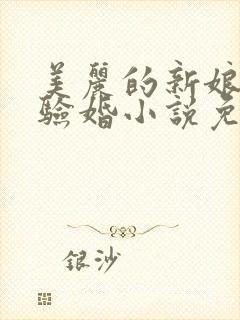 美麗的新娘
驗婚小說免
銀沙